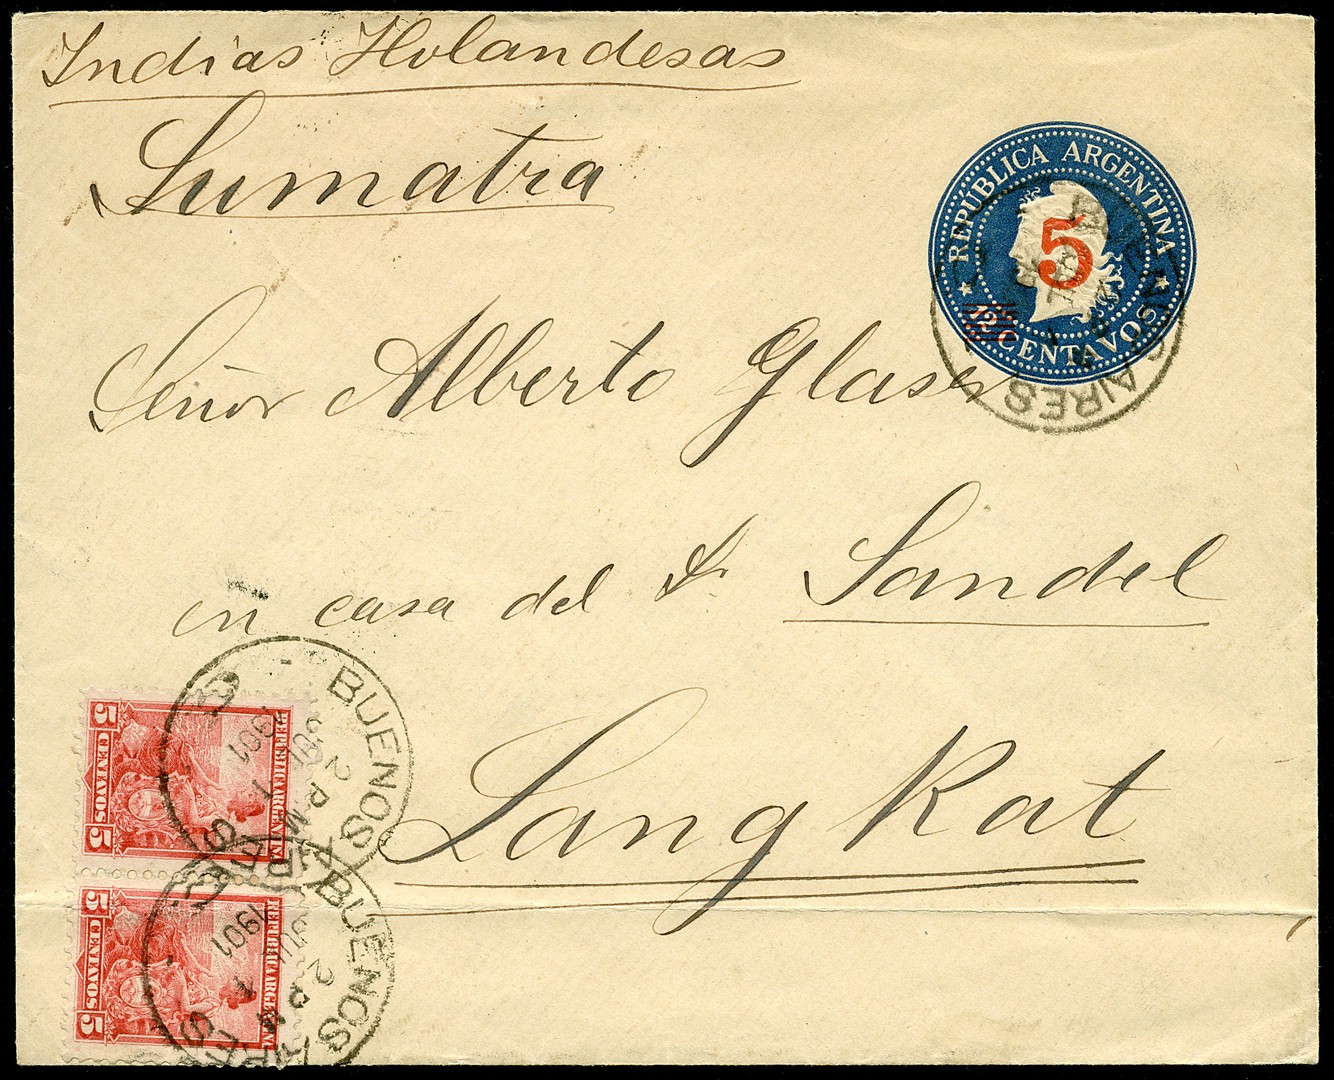 Indias Holandesas
Sumatra
REPUBLICA ARGENTINA
5
12 CENTAVOS
BUENOS AIRES
Señor Alberto Glaser
en casa del Sr Sandel
LangKat
REPUBLICA ARGENTINA
5 CENTAVOS 5
BUENOS AIRES
JUL 1
2 P.M
1901
REPUBLICA ARGENTINA
5 CENTAVOS 5
BUENOS AIRES
JUL 1
2 P.M
1901